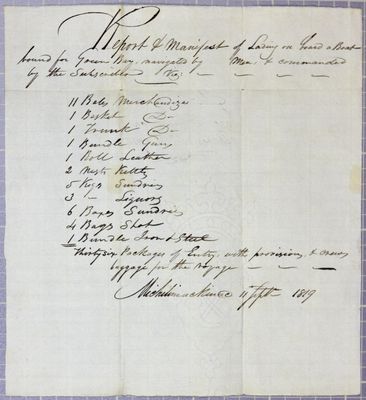 Report & Manifest of Lading on board a Boat
bound for Green Bay, navigated by Men, & commanded
by the Subscriber Viz; — — — —
11 Bales Merchandize
1 Basket Do
1 Trunk Do
1 Bundle Guns
1 Roll Leather
2 Nests Kettles
5 Kegs Sundries
3 " Liquors
6 Boxes Sundries
4 Bags Shot
1 Bundle Iron & Steel
Thirty six Packages of Entry, with provisions, & crews
baggage for the voyage — — —
Michilimackinac 11 Septr 1819